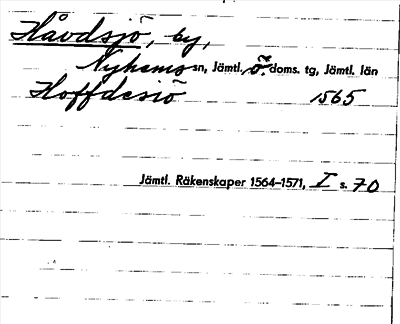 Håvdsjö, by,
Nyhems sn, Jämtl. ö. doms. tg, Jämtl. län
Hoffdesiö 1565
Jämtl. Räkenskaper 1564–1571, I s. 70